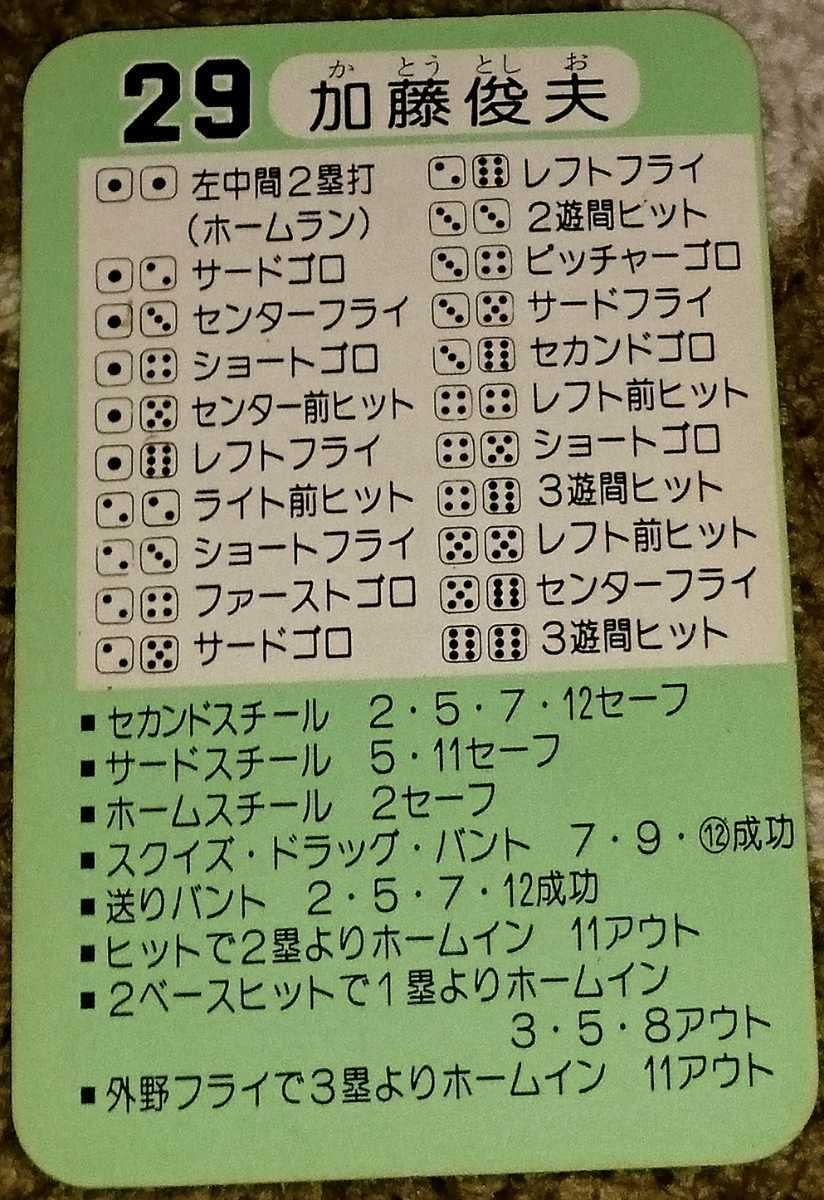 29 加藤俊夫
か とう とし お
⚀⚀ 左中間2塁打
(ホームラン)
⚀⚁ サードゴロ
⚀⚂ センターフライ
⚀⚃ ショートゴロ
⚀⚄ センター前ヒット
⚀⚅ レフトフライ
⚁⚁ ライト前ヒット
⚁⚂ ショートフライ
⚁⚃ ファーストゴロ
⚁⚄ サードゴロ
⚁⚅ レフトフライ
⚂⚂ 2遊間ヒット
⚂⚃ ピッチャーゴロ
⚂⚄ サードフライ
⚂⚅ セカンドゴロ
⚃⚃ レフト前ヒット
⚃⚄ ショートゴロ
⚃⚅ 3遊間ヒット
⚄⚄ レフト前ヒット
⚄⚅ センターフライ
⚅⚅ 3遊間ヒット
■セカンドスチール 2・5・7・12セーフ
■サードスチール 5・11セーフ
■ホームスチール 2セーフ
■スクイズ・ドラッグ・バント 7・9・⑫成功
■送りバント 2・5・7・12成功
■ヒットで2塁よりホームイン 11アウト
■2ベースヒットで1塁よりホームイン
3・5・8アウト
■外野フライで3塁よりホームイン 11アウト